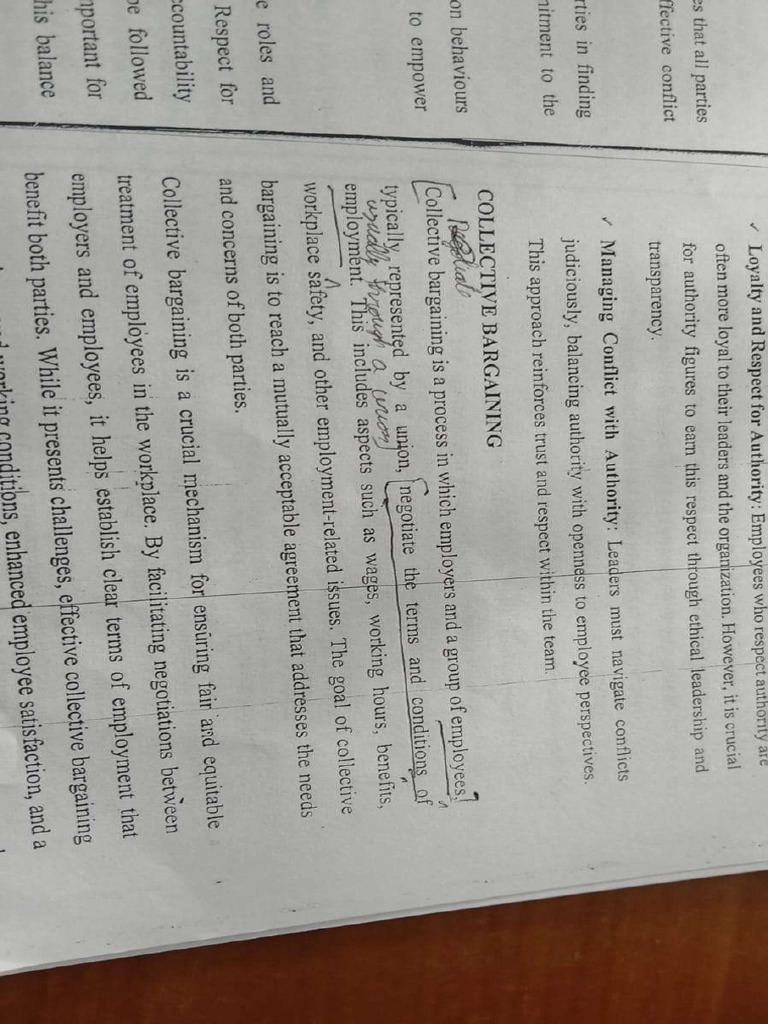 es that all parties
ffective conflict
rties in finding
mitment to the
on behaviours
to empower
e roles and
Respect for
ccountability
be followed
mportant for
his balance
✓ Loyalty and Respect for Authority: Employees who respect authority are
often more loyal to their leaders and the organization. However, it is crucial
for authority figures to earn this respect through ethical leadership and
transparency.
✓ Managing Conflict with Authority: Leaders must navigate conflicts
judiciously, balancing authority with openness to employee perspectives.
This approach reinforces trust and respect within the team.
COLLECTIVE BARGAINING
Negotiate
Collective bargaining is a process in which employers and a group of employees,
typically represented by a union, negotiate the terms and conditions of
usually through a union
employment. This includes aspects such as wages, working hours, benefits,
workplace safety, and other employment-related issues. The goal of collective
bargaining is to reach a mutually acceptable agreement that addresses the needs
and concerns of both parties.
Collective bargaining is a crucial mechanism for ensuring fair and equitable
treatment of employees in the workplace. By facilitating negotiations between
employers and employees, it helps establish clear terms of employment that
benefit both parties. While it presents challenges, effective collective bargaining
working conditions, enhanced employee satisfaction, and a